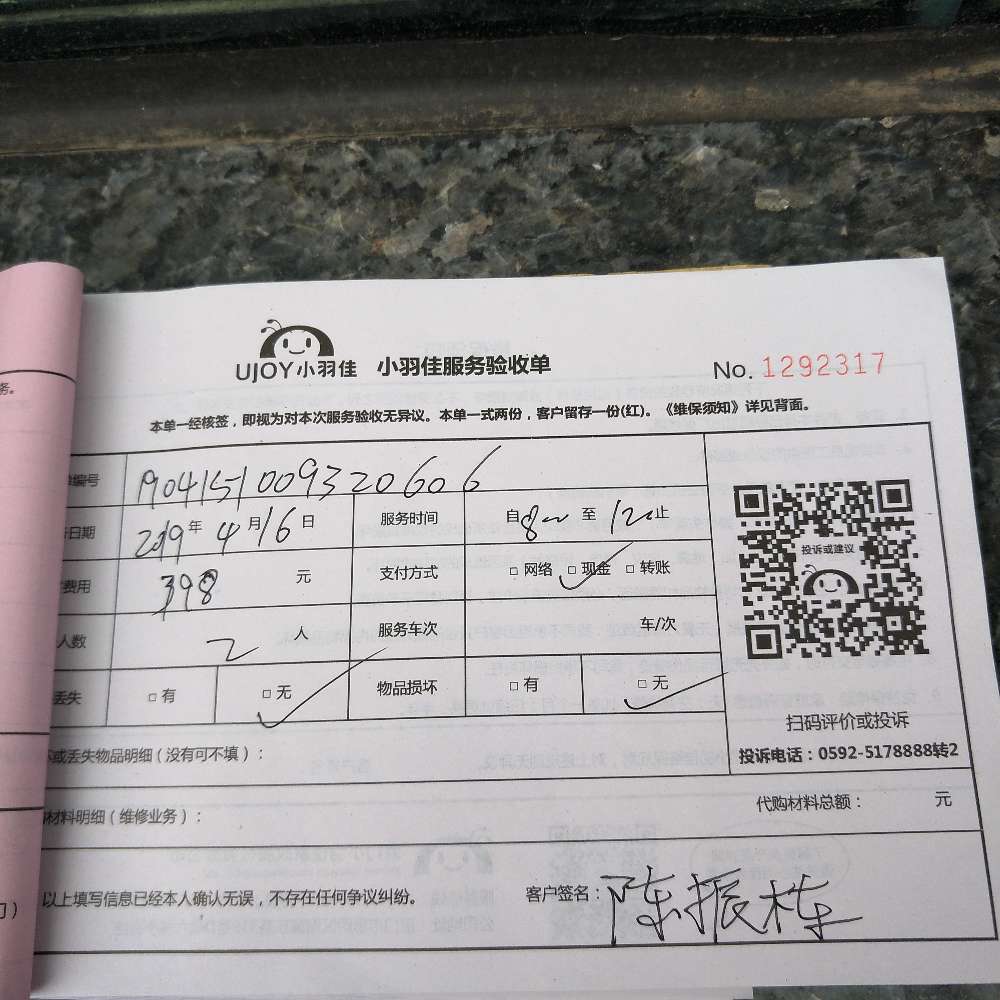 务。
UJOY小羽佳 小羽佳服务验收单 No. 1292317
本单一经核签，即视为对本次服务验收无异议。本单一式两份，客户留存一份(红)。《维保须知》详见背面。
编号 190415100932060 6
日期 2019年 4月16日 服务时间 自8~ 至 12 止
费用 398 元 支付方式 □ 网络 □ 现金 □ 转账
人数 2 人 服务车次 车/次
丢失 □ 有 □ 无 物品损坏 □ 有 □ 无
投诉或建议
扫码评价或投诉
投诉电话：0592-5178888转2
或丢失物品明细（没有可不填）：
材料明细（维修业务）： 代购材料总额： 元
以上填写信息已经本人确认无误，不存在任何争议纠纷。 客户签名：陈振栋